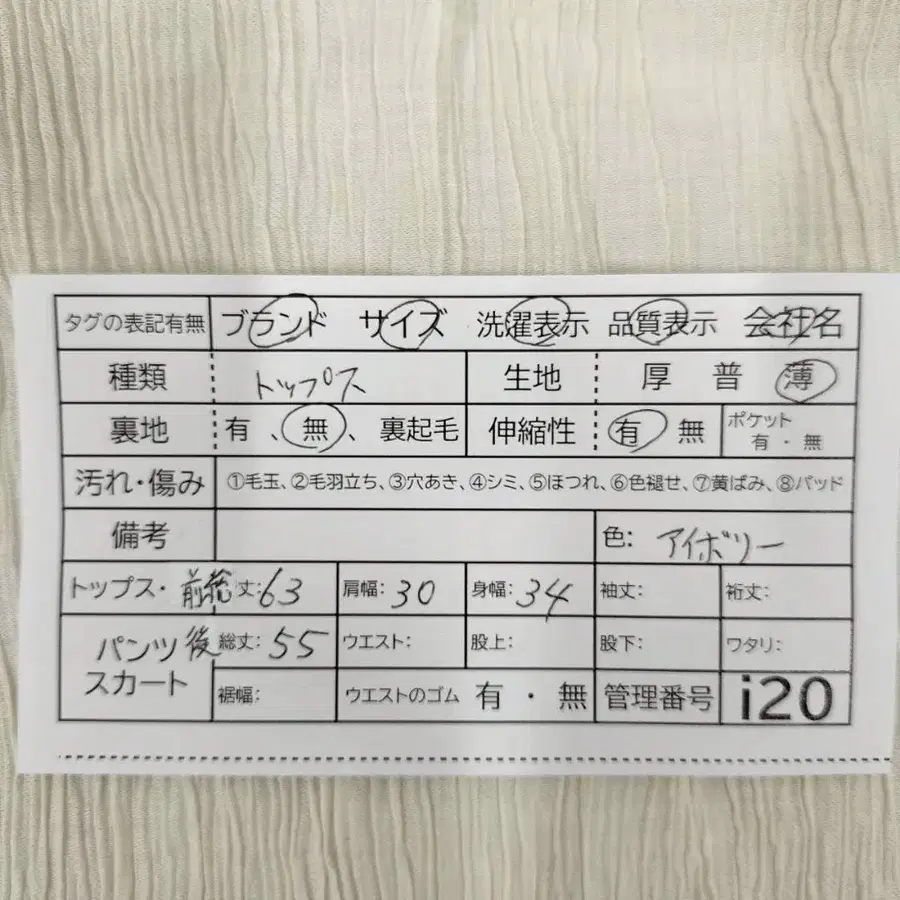 タグの表記有無 ブランド サイズ 洗濯表示 品質表示 会社名
種類 トップス 生地 厚 普 薄
裏地 有 、無 、裏起毛 伸縮性 有 無 ポケット 有・無
汚れ・傷み ①毛玉、②毛羽立ち、③穴あき、④シミ、⑤ほつれ、⑥色褪せ、⑦黄ばみ、⑧パッド
備考 色: アイボリー
トップス・ 前総丈:63 肩幅:30 身幅:34 袖丈: 裄丈:
パンツ 後総丈:55 ウエスト: 股上: 股下: ワタリ:
スカート 裾幅: ウエストのゴム 有・無 管理番号 i20